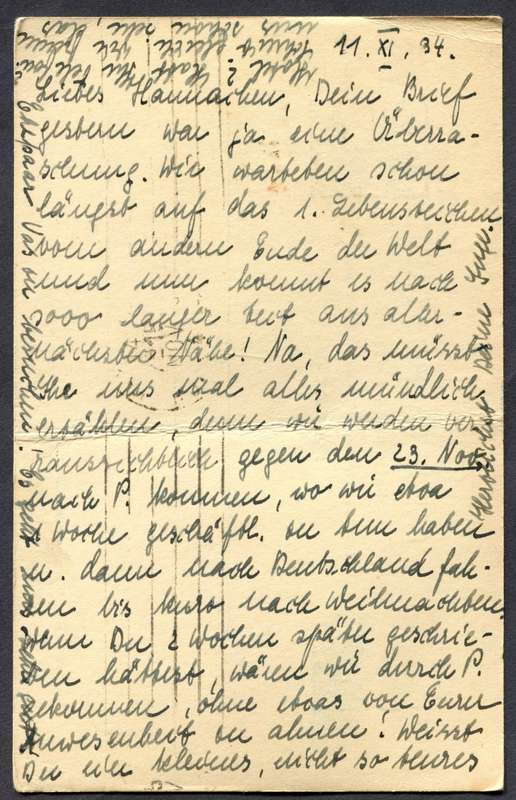 11. XI. 34.
Liebes Hannachen, Dein Brief
gestern war ja eine Überra-
schung. Wir warteten schon
längst auf das 1. Lebenszeichen
vom andern Ende der Welt
und nun kommt es nach
sooo langer Zeit aus aller-
nächster Nähe! Na, das müsst
Ihr uns mal alles mündlich
erzählen, denn wir werden vor
raussichtlich gegen den 23. Nov.
nach P. kommen, wo wir etwa
1 Woche geschäftl. zu tun haben
u. dann nach Deutschland fah-
ren bis kurz nach Weihnachten.
Wenn Du 2 Wochen später geschrie-
ben hättest, wären wir durch P.
gekommen, ohne etwas von Eurer
Anwesenheit zu ahnen! Weisst
Du ein kleines, nicht so teures
Hotel
uns schon
Ehepaar
zu besuchen! Es geht uns sehr gut
Herzlichst Deine